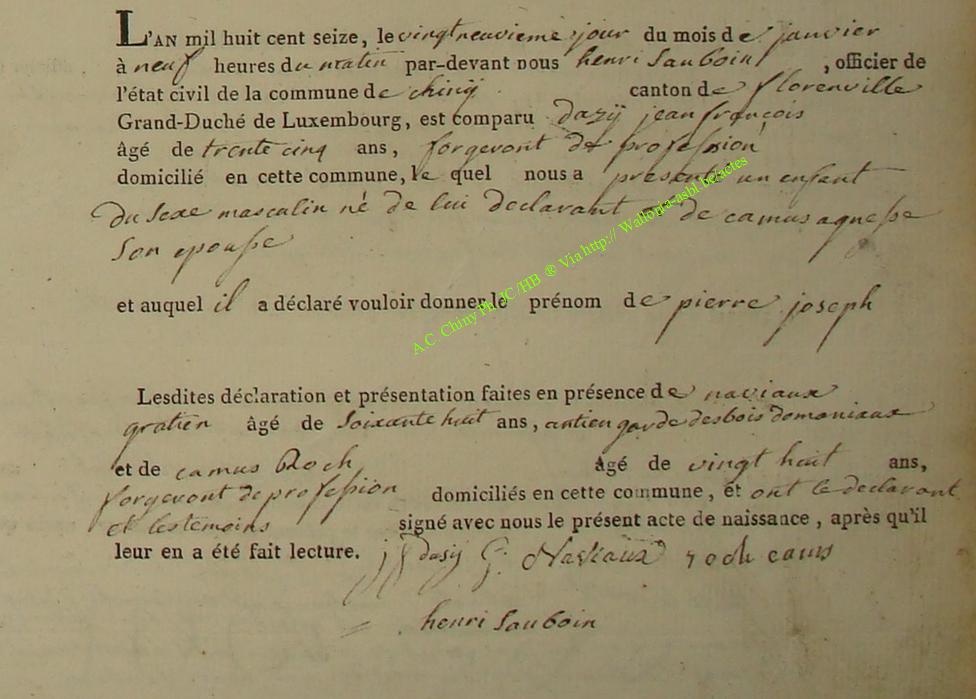 L'AN mil huit cent seize, le vingtneuvieme jour du mois de janvier
à neuf heures du matin par-devant nous henri Sauboin, officier de
l'état civil de la commune de chinÿ canton de florenville
Grand-Duché de Luxembourg, est comparu dazÿ jean françois
âgé de trente cinq ans, forgeront de profession
domicilié en cette commune, le quel nous a presenté un enfant
du sexe masculin né de lui declarant et de camus agnesse
son epousse
et auquel il a déclaré vouloir donner le prénom de pierre joseph
Lesdites déclaration et présentation faites en présence de naviaux
gratien âgé de soixante huit ans, antien garde des bois domaniaux
et de camus Roch âgé de vingt huit ans,
forgeront de profession domiciliés en cette commune, et ont le declarant
et les temoins signé avec nous le présent acte de naissance, après qu'il
leur en a été fait lecture. dasÿ G. Naviaux roch camus
henri Sauboin
A.C. Chiny Ph JC /HB ® Via http:// Wallonia-asbl.be/actes